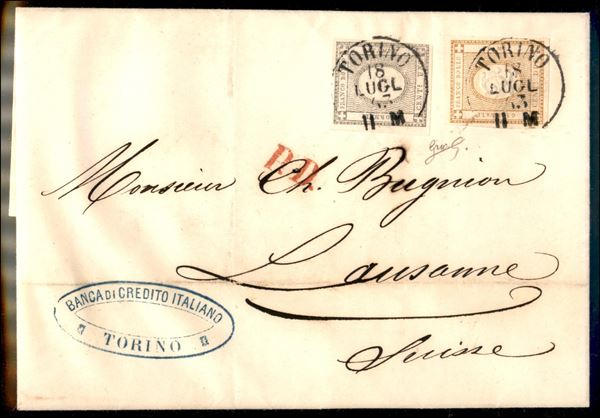 TORINO
18
LUGL
63
11 M
TORINO
18
LUGL
63
11 M
FRANCO BOLLO
FRANCO BOLLO
P.D.
Monsieur Ch. Bugnion
Lausanne
Suisse
BANCA DI CREDITO ITALIANO
TORINO